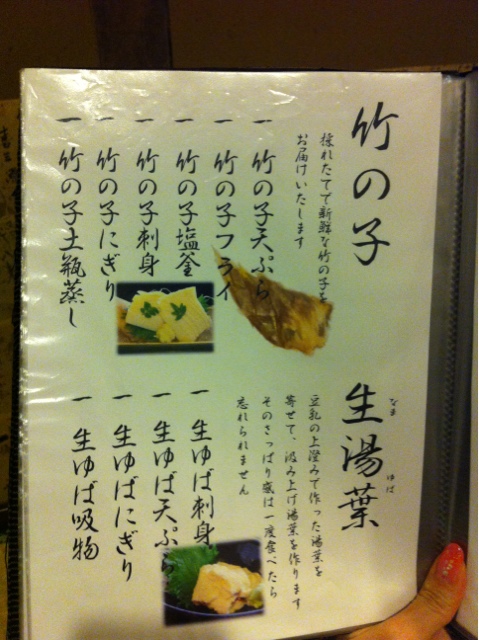 竹の子
採れたてで新鮮な竹の子を
お届けいたします
一 竹の子天ぷら
一 竹の子フライ
一 竹の子塩釜
一 竹の子刺身
一 竹の子にぎり
一 竹の子土瓶蒸し
生湯葉
なま ゆば
豆乳の上澄みで作った湯葉を
寄せて、汲み上げ湯葉を作ります
そのさっぱり感は一度食べたら
忘れられません
一 生ゆば刺身
一 生ゆば天ぷら
一 生ゆばにぎり
一 生ゆば吸物